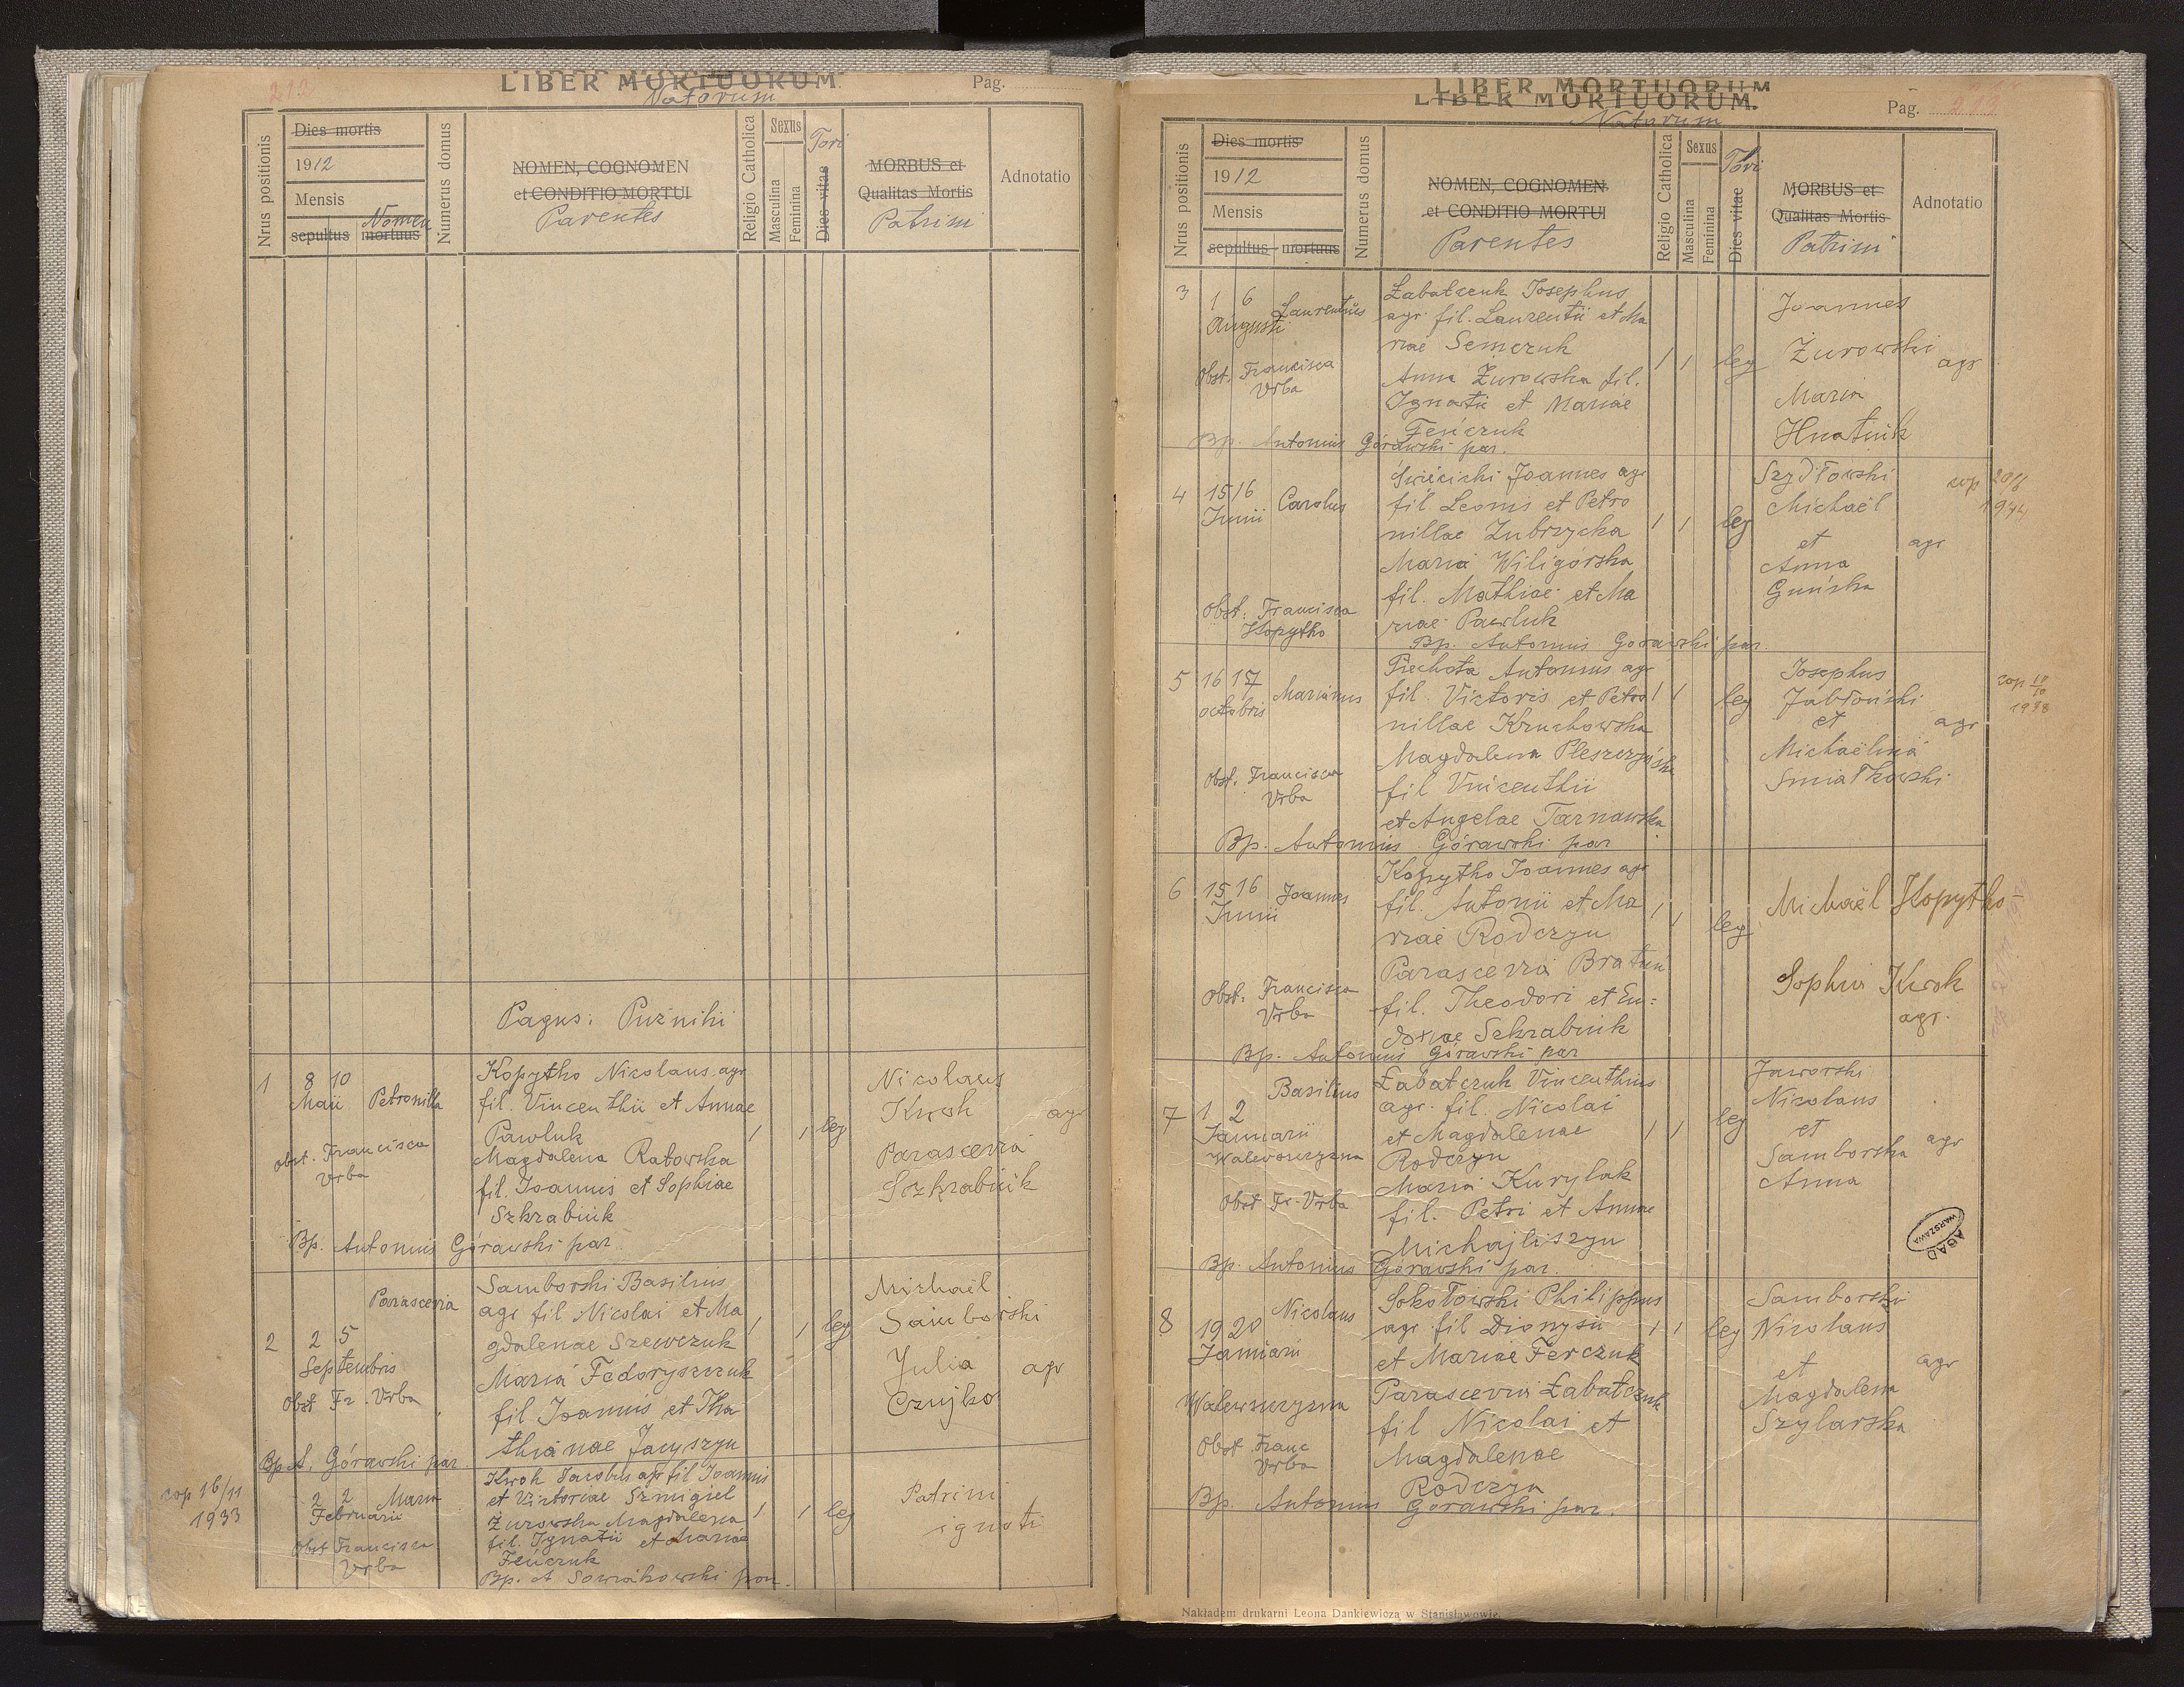 212
LIBER MORTUORUM
Natorum
Pag.
Nrus positionis
Dies mortis
1912
Mensis
sepultus
mortuus
Nomen
Numerus domus
NOMEN, COGNOMEN
et CONDITIO MORTUI
Parentes
Religio Catholica
Sexus
Masculina
Feminina
Tori
Dies vitae
MORBUS et
Qualitas Mortis
Patrini
Adnotatio
Pagus: Puźniki
1
8 10
Maii
Petronilla
Obst. Francisca
Vrba
Kopytko Nicolaus agr
fil. Vincenthii et Annae
Pawluk
Magdalena Ratowska
fil. Joannis et Sophiae
Szkrabiuk
1
1
leg
Nicolaus
Kwok
Parascevia
Szkrabiuk
agr
Bp. Antonius Górawski par.
2
2 5
Septembris
Parascevia
Obst Fr. Vrba
Samborski Basilius
agr fil Nicolai et Ma
gdalenae Szewczuk
Maria Fedoryszczuk
fil. Joannis et Tha
thianae Jacyszyn
1
1
leg
Michaël
Samborski
Julia
Czujko
agr
Bp A. Górawski par.
cop 16/11
1933
2 2
Februarii
Maria
Obst Francisca
Vrba
Kwok Jacobus agr fil Joannis
et Victoriae Szmigiel
Żurowska Magdalena
fil. Ignatii et Mariae
Feńczuk
1
1
leg
Patrini
ignoti
Bp. A Sowiakowski par.
LIBER MORTUORUM
LIBER MORTUORUM.
Natorum
Pag. 213
Nrus positionis
Dies mortis
1912
Mensis
sepultus
mortuus
Numerus domus
NOMEN, COGNOMEN
et CONDITIO MORTUI
Parentes
Religio Catholica
Sexus
Masculina
Feminina
Tori
Dies vitae
MORBUS et
Qualitas Mortis
Patrini
Adnotatio
3
1 6
Augusti
Laurentius
Obst. Francisca
Vrba
Łabatczuk Josephus
agr. fil. Laurentii et Ma
riae Semczuk
Anna Żurowska fil.
Ignatii et Mariae
Feńczuk
1
1
leg
Joannes
Żurowski
Maria
Hnatiuk
agr
Bp. Antonius Górawski par.
4
15 16
Junii
Carolus
Obst. Francisca
Kopytko
Święcicki Joannes agr
fil Leonis et Petro
nillae Zubrzycka
Maria Wiligórska
fil. Mathiae et Ma
riae Pawluk
1
1
leg
Szydłowski
Michaël
et
Anna
Gunska
agr
cop 20/8
1944
Bp. Antonius Gorawski par.
5
16 17
octobris
Marianus
Obst. Francisca
Vrba
Piechota Antonius agr
fil. Victoris et Petro
nillae Kruchowska
Magdalena Pleszczyńska
fil Vincenthii
et Angelae Tarnawska
1
1
leg
Josephus
Jabłoński
et
Michaëlina
Smiatkowski
agr
cop
1938
Bp. Antonius Górawski par
6
15 16
Junii
Joannes
Obst. Francisca
Vrba
Kopytko Joannes agr
fil. Antonii et Ma
riae Rodczyn
Parascevia Bratuń
fil. Theodori et Eu=
doxiae Szkrabiuk
1
1
leg
Michaël Kopytko
Sophia Kwok
agr.
Bp. Antonius Górawski par
7
1 2
Januarii
Basilius
Walewszczyzna
Obst Fr. Vrba
Łabatczuk Vincenthius
agr. fil. Nicolai
et Magdalenae
Rodczyn
Maria Kurylak
fil. Petri et Annae
Michajliszyn
1
1
leg
Jaworski
Nicolaus
et
Samborska
Anna
agr
AGAD
WARSZAWA
Bp. Antonius Górawski par.
8
19 20
Januarii
Nicolaus
Walewszczyzna
Obst Franc
Vrba
Sokołowski Philippus
agr fil Dionysii
et Mariae Ferczuk
Parascevia Łabatczuk
fil Nicolai et
Magdalenae
Rodczyn
1
1
leg
Samborski
Nicolaus
et
Magdalena
Szylarska
agr
Bp. Antonius Górawski par.
Nakładem drukarni Leona Dankiewicza w Stanisławowie.